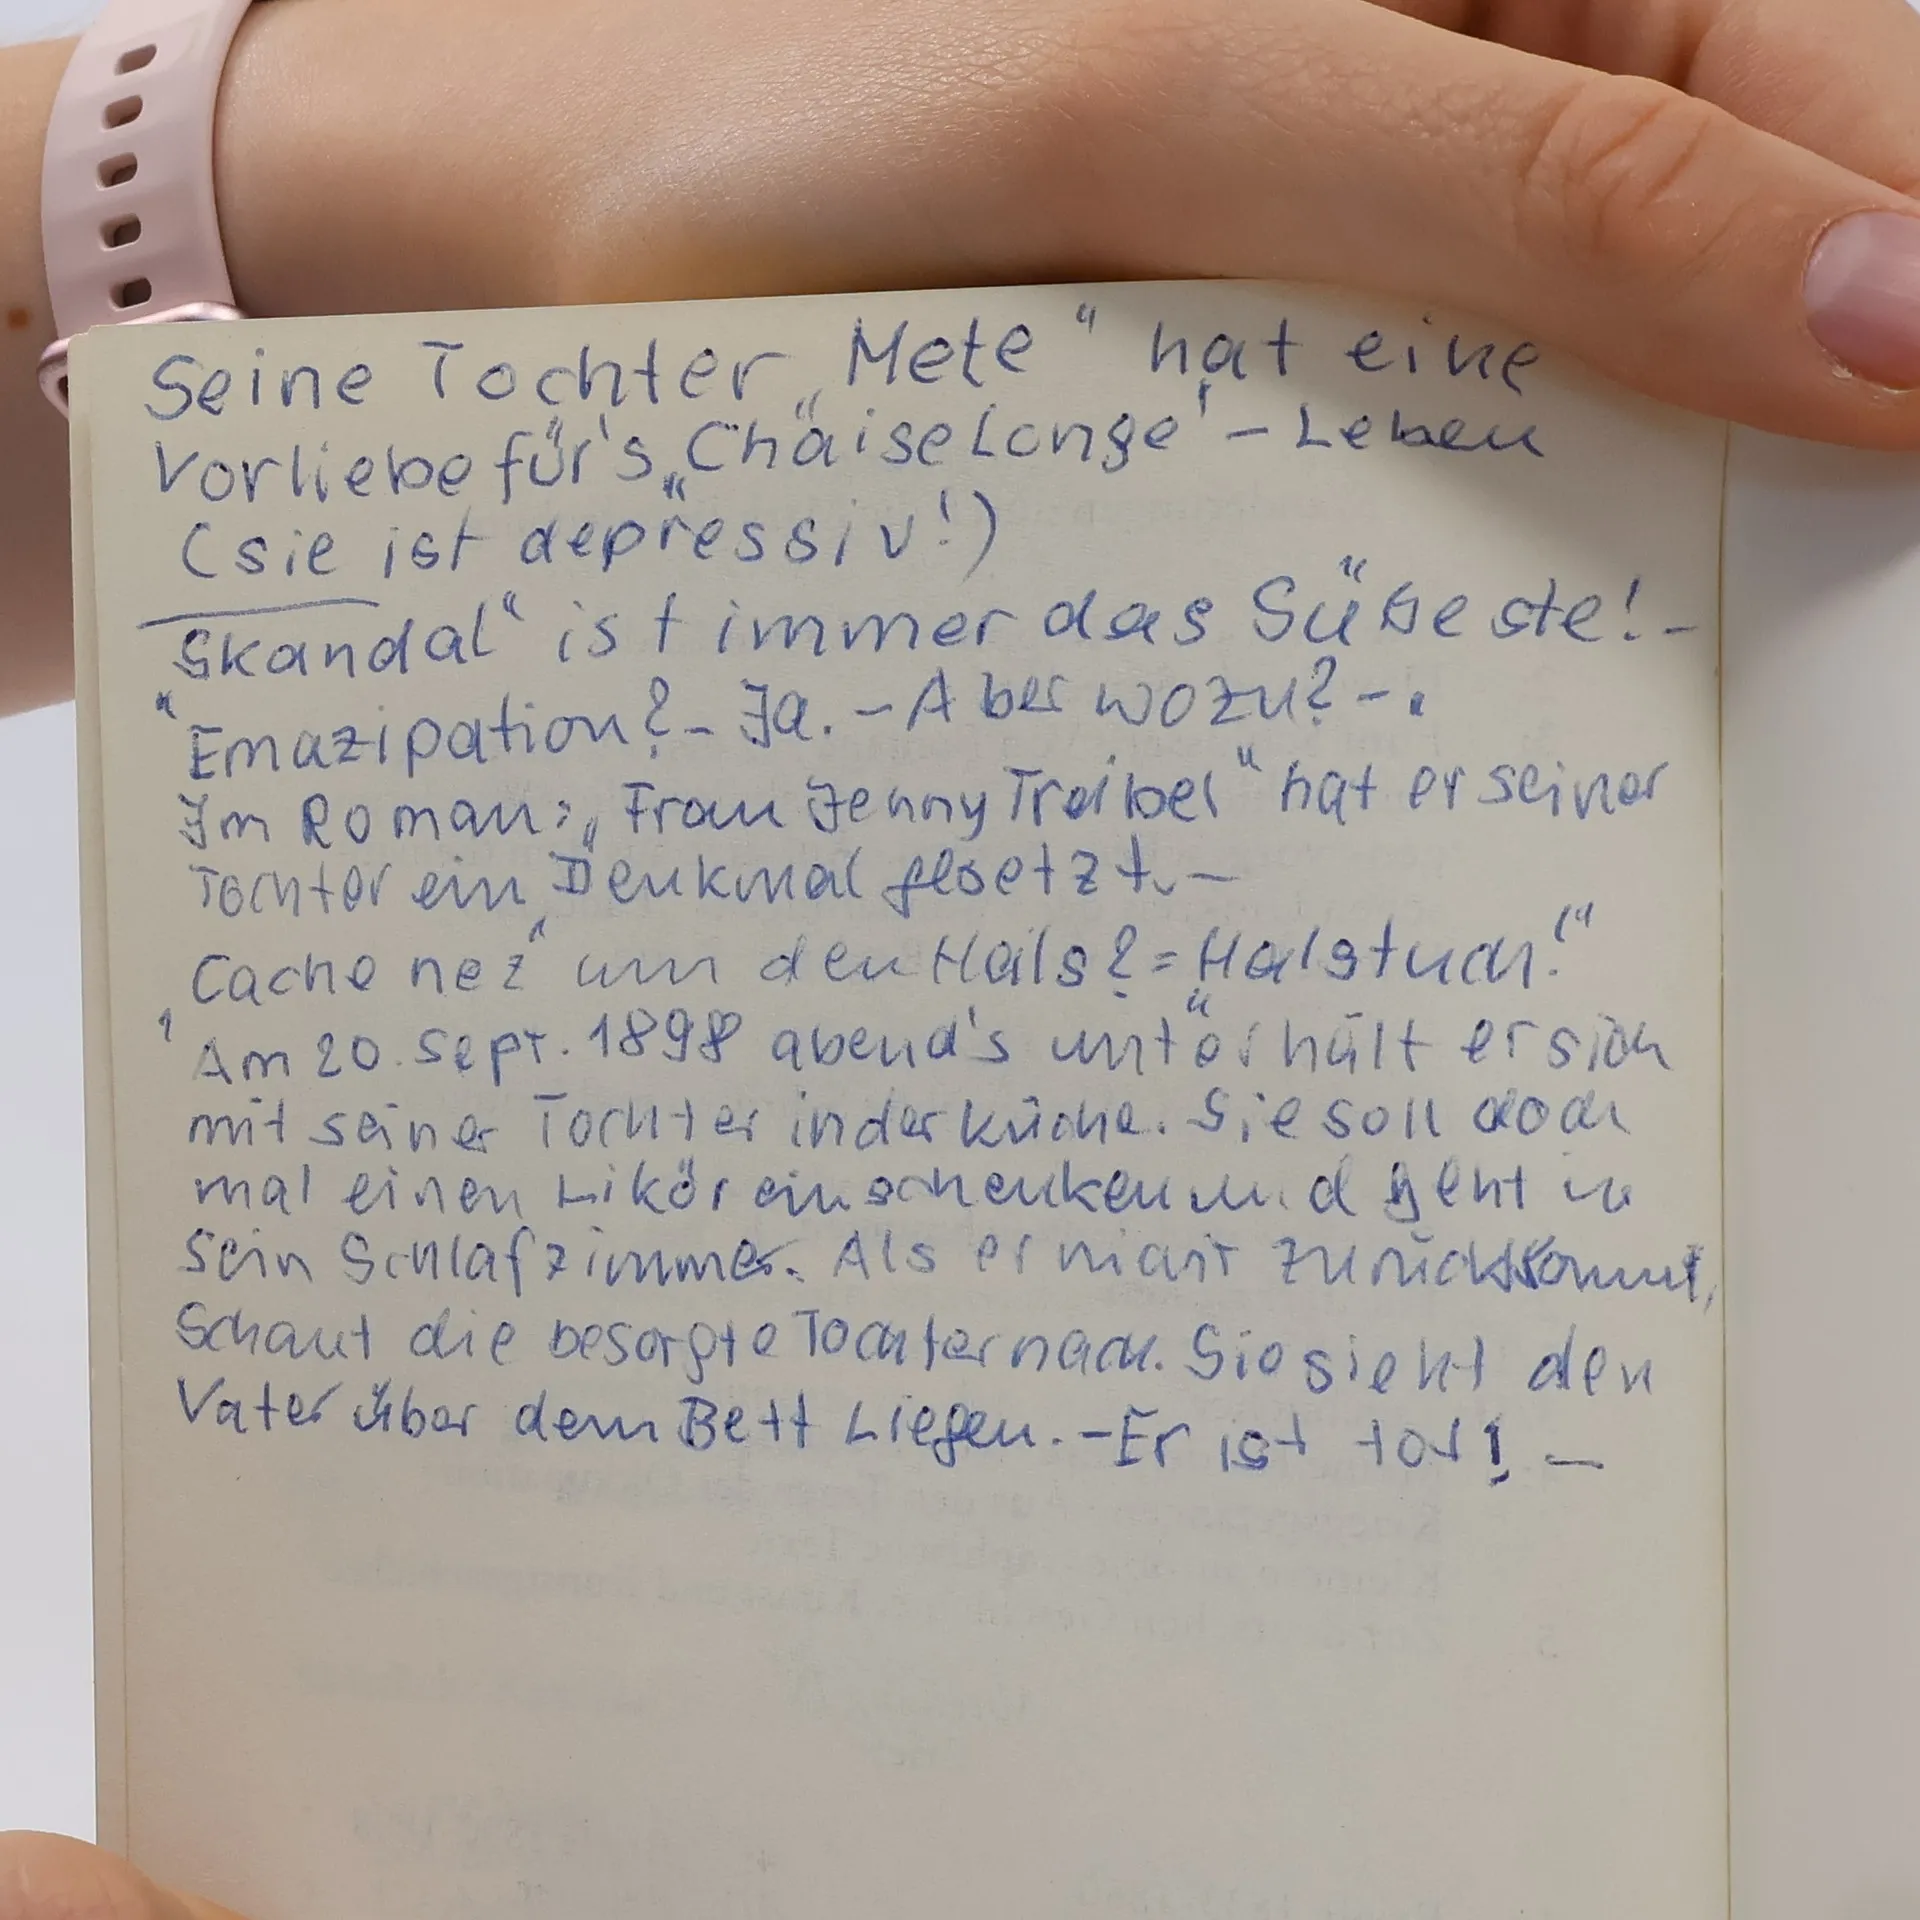 Seine Tochter „Mete“ hat eine
Vorliebe für's „Chaiselonge“ - Leben
(sie ist depressiv!)
„Skandal“ ist immer das Süßeste! -
Emazipation? - Ja. - Aber wozu? -.
Im Roman: „Frau Jenny Treibel“ hat er seiner
Tochter ein Denkmal gesetzt. -
„Cache nez“ um den Hals? = „Halstuch!“
Am 20. Sept. 1898 abend's unterhält er sich
mit seiner Tochter in der Küche. Sie soll doch
mal einen Likör einschenken und geht in
sein Schlafzimmer. Als er nicht zurückkommt,
schaut die besorgte Tochter nach. Sie sieht den
Vater über dem Bett liegen. - Er ist tot! -